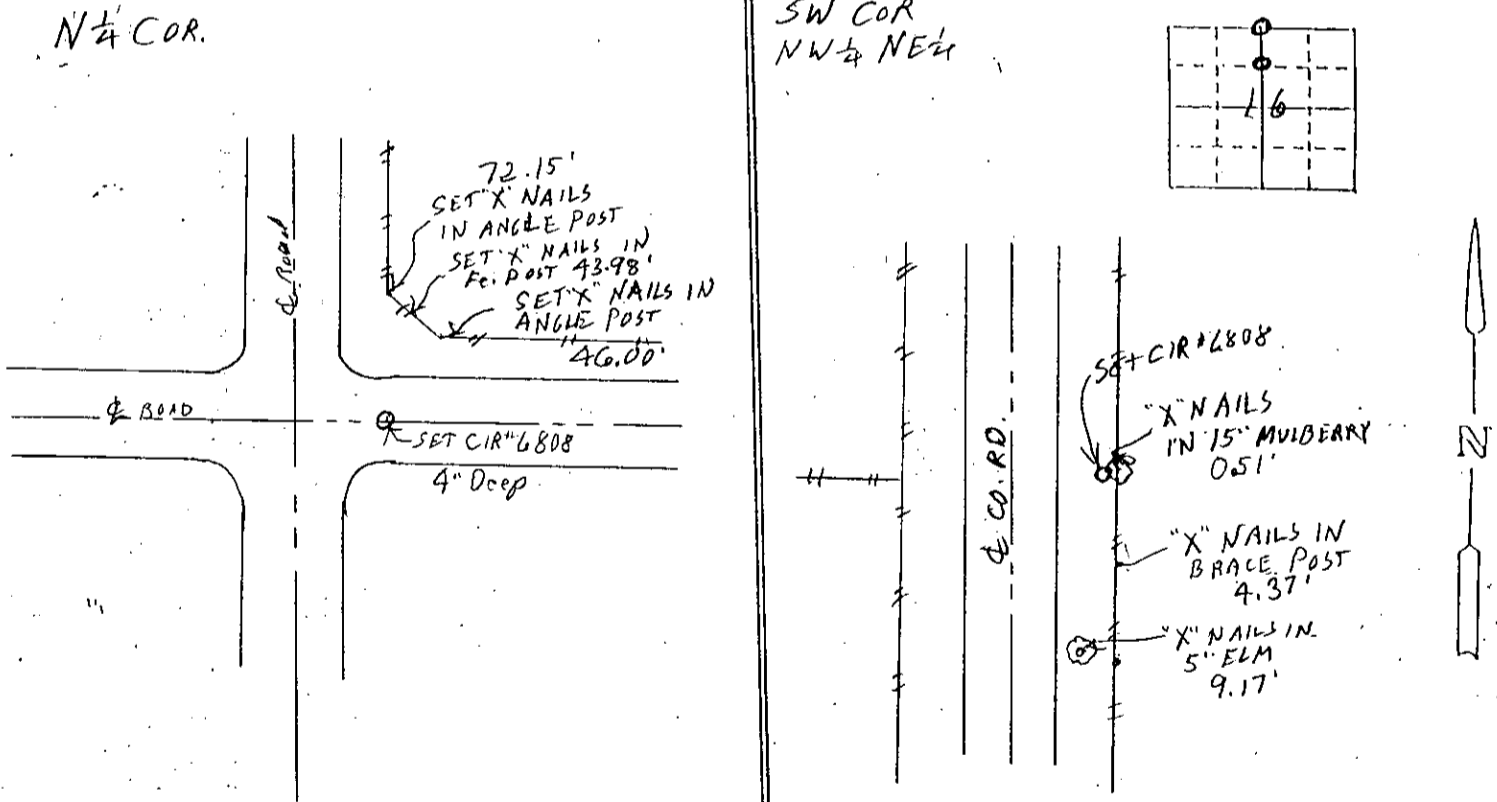 N 1/4 COR.
72.15'
SET "X" NAILS
IN ANGLE POST
SET "X" NAILS IN
Fe. POST 43.98'
SET "X" NAILS IN
ANGLE POST
46.00'
℄ ROAD
℄ ROAD
SET CIR #6808
4" Deep
SW COR
NW 1/4 NE 1/4
16
SET CIR #6808
"X" NAILS
IN 15" MULBERRY
0.51'
℄ CO. RD.
"X" NAILS IN
BRACE POST
4.37'
"X" NAILS IN
5" ELM
9.17'
N